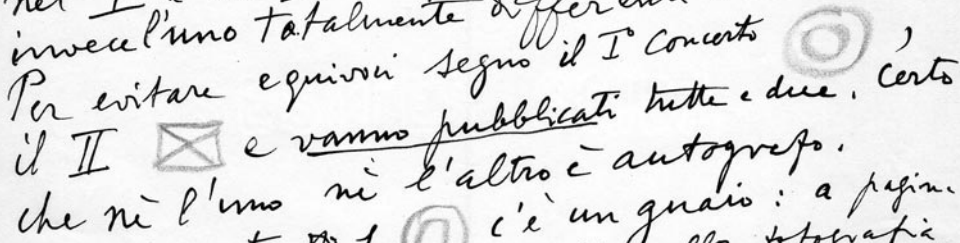 nel I
invece l'uno totalmente
Per evitare equivoci segno il I° concerto
il II e vanno pubblicati tutte e due. Certo
che nè l'uno nè l'altro è autografo.
c'è un guaio: a pagin.
fotografia